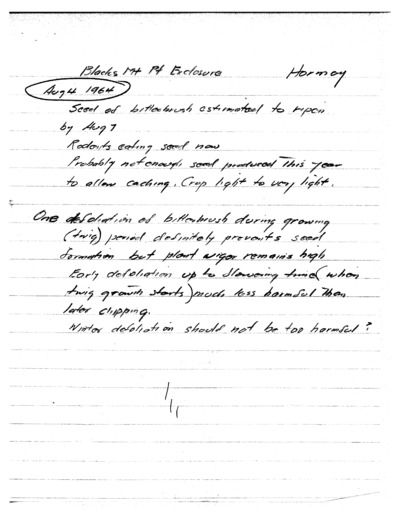 Blacks Mt Pt Enclosure Hormay
Aug 4 1964
Seed of bitterbrush estimated to ripen
by Aug 7
Rodents eating seed now
Probably not enough seed produced This year
to allow caching. Crop light to very light.
One defoliation of bitterbrush during growing
(twig) period definitely prevents seed
formation but plant vigor remains high
Early defoliation up to flowering time (when
twig growth starts) much less harmful Than
later clipping.
Winter defoliation should not be too harmful?